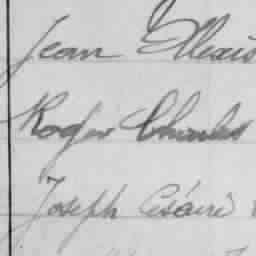 Jean Alexis
Roger Charles
Joseph Césaire